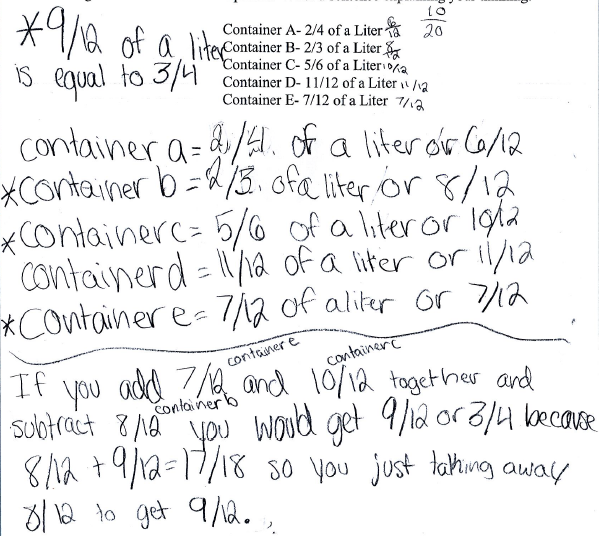 10
20
*9/12 of a liter
is equal to 3/4
Container A- 2/4 of a Liter 6/12
Container B- 2/3 of a Liter 8/12
Container C- 5/6 of a Liter 10/12
Container D- 11/12 of a Liter 11/12
Container E- 7/12 of a Liter 7/12
container a= 2/4. of a liter or 6/12
*container b = 2/3. of a liter or 8/12
*container c= 5/6 of a liter or 10/12
container d = 11/12 of a liter or 11/12
*container e= 7/12 of a liter or 7/12
container e container c
If you add 7/12 and 10/12 together and
container b
subtract 8/12 you would get 9/12 or 3/4 because
8/12 + 9/12=17/18 so you just taking away
8/12 to get 9/12.